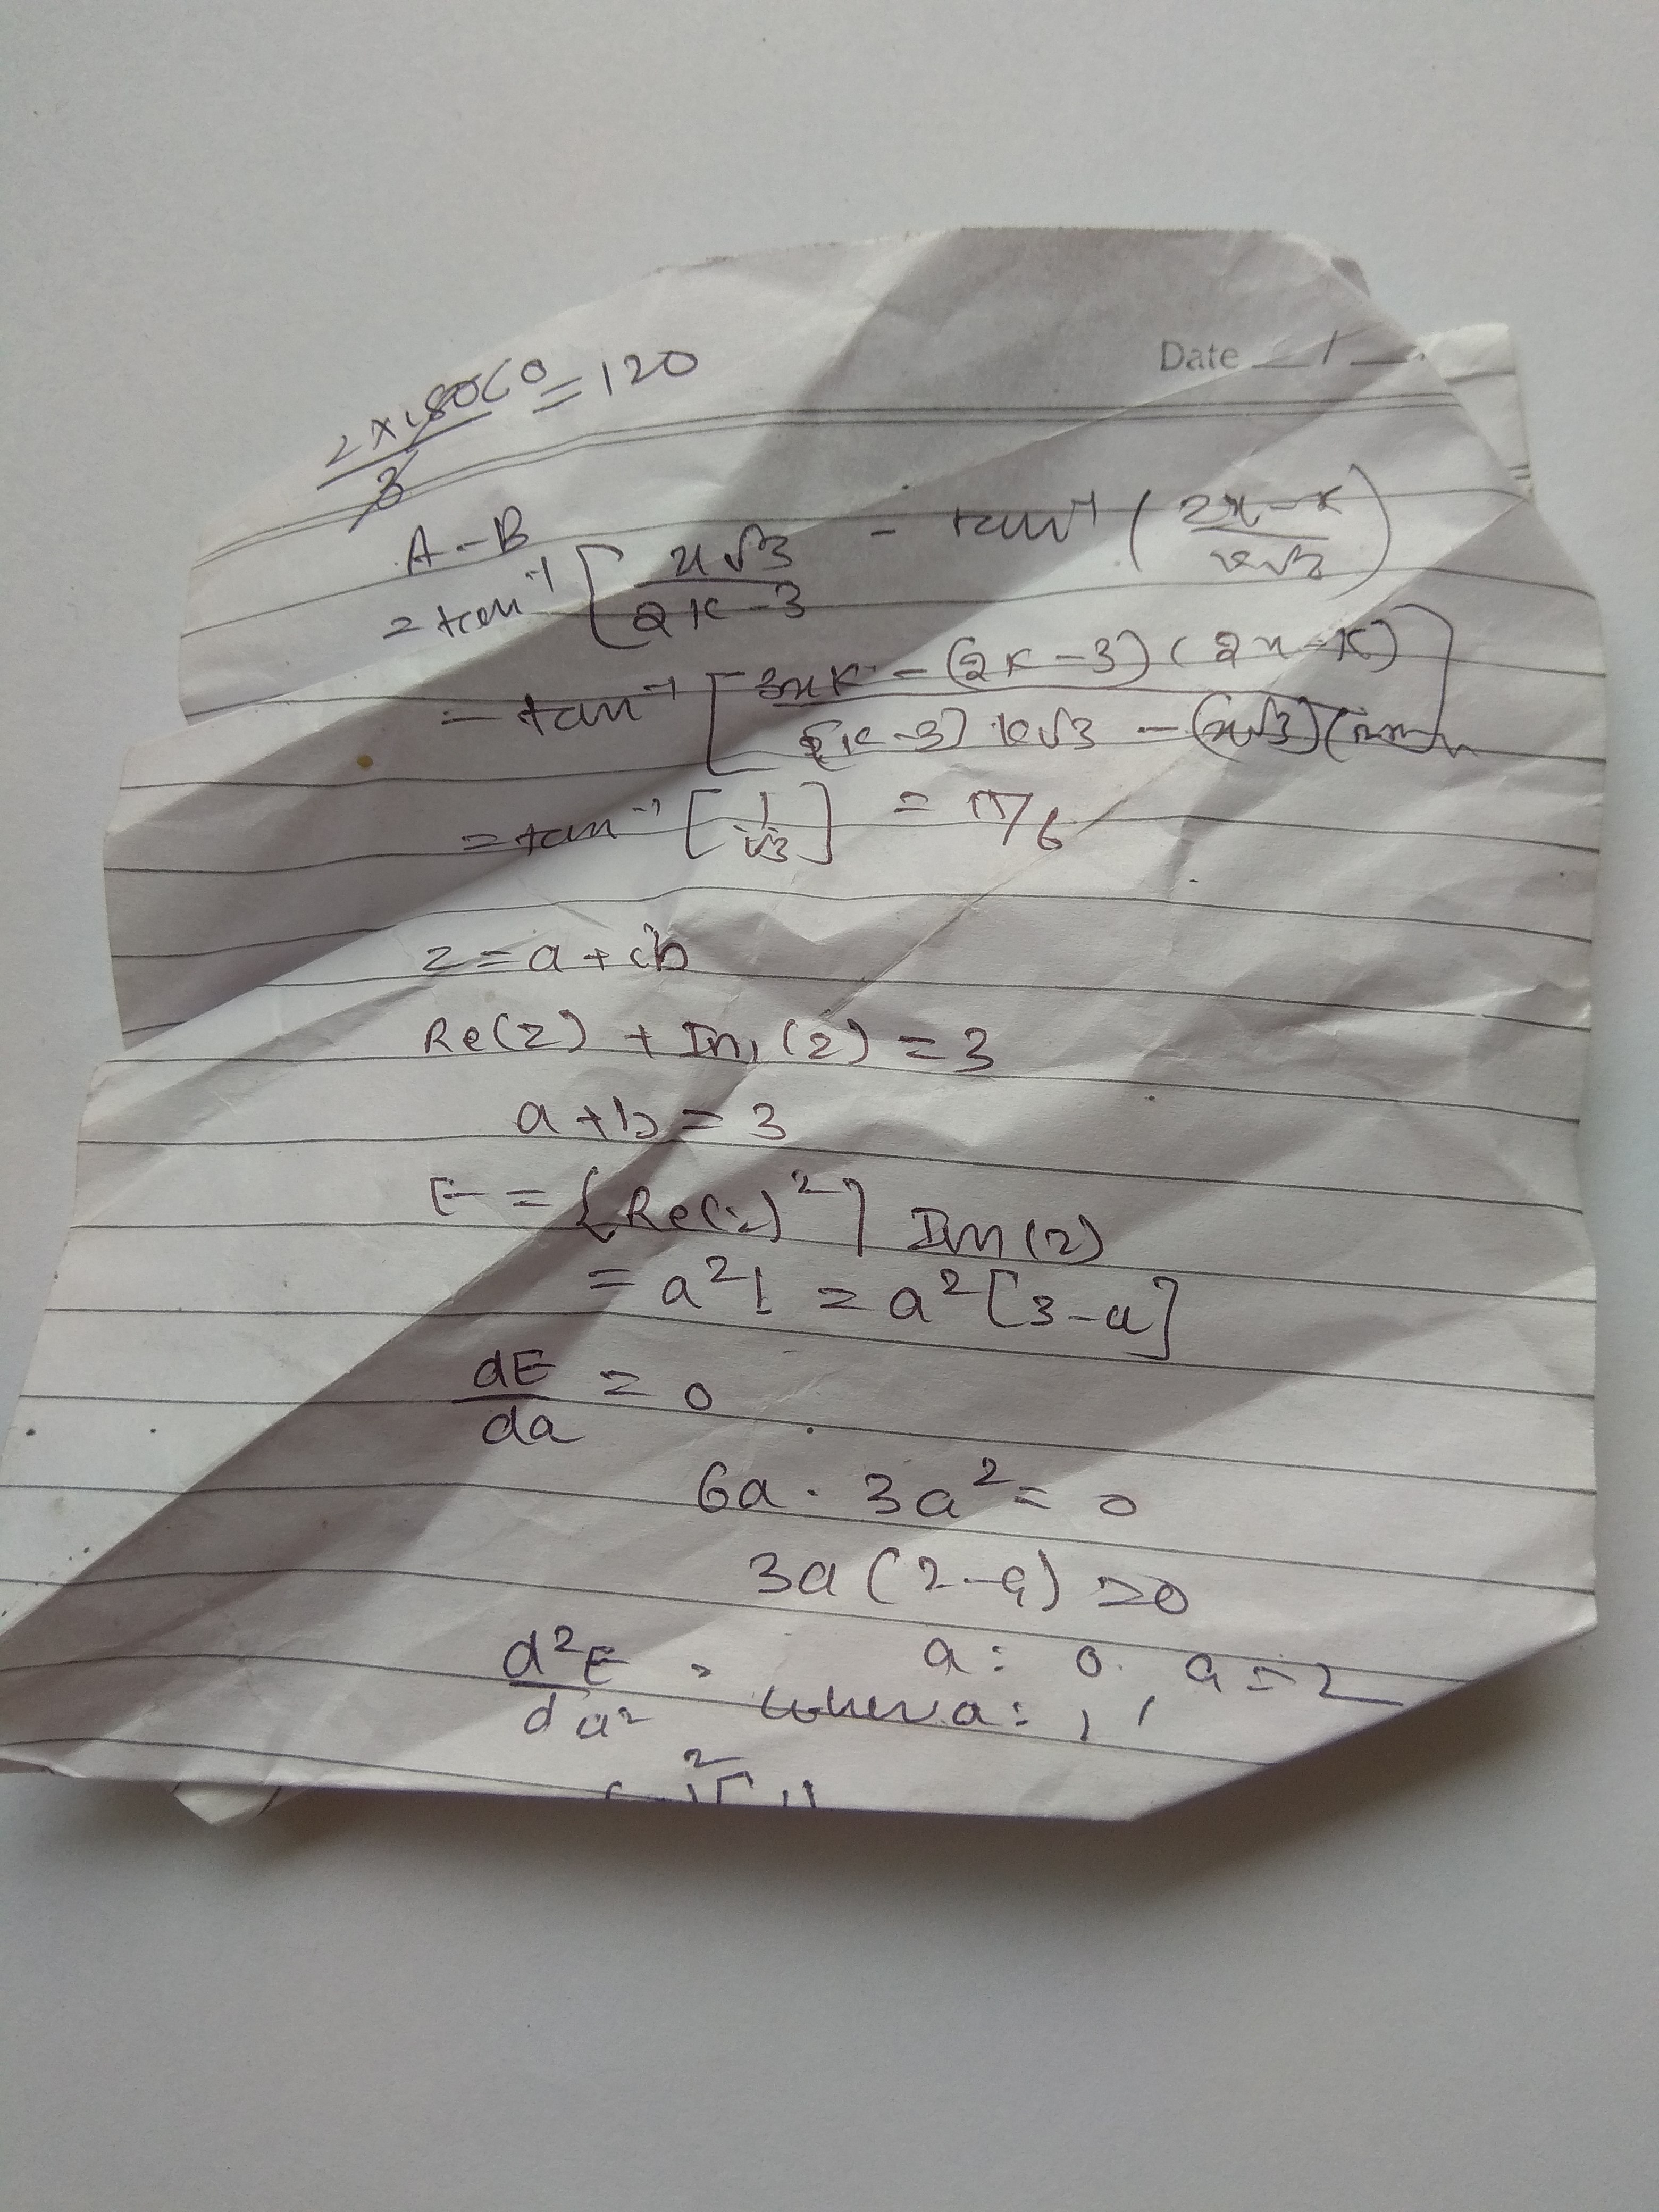 Date / 
2×180 60 / 3 = 120
A-B
= tan⁻¹ [ x√3 / 2K-3 - tan⁻¹ ( 2x-K / K√3 )
= tan⁻¹ [ 3xK - (2K-3)(2x-K) / (2K-3) K√3 - (x√3)( ]
= tan⁻¹ [ 1/√3 ] = π/6
z = a + ib
Re(z) + Im(z) = 3
a + b = 3
E = {Re(z)²} Im(z)
= a² = a² [3-a]
dE/da = 0
6a · 3a² = 0
3a (2-a) = 0
a: 0. a = 2
d²E/da² when a:
2